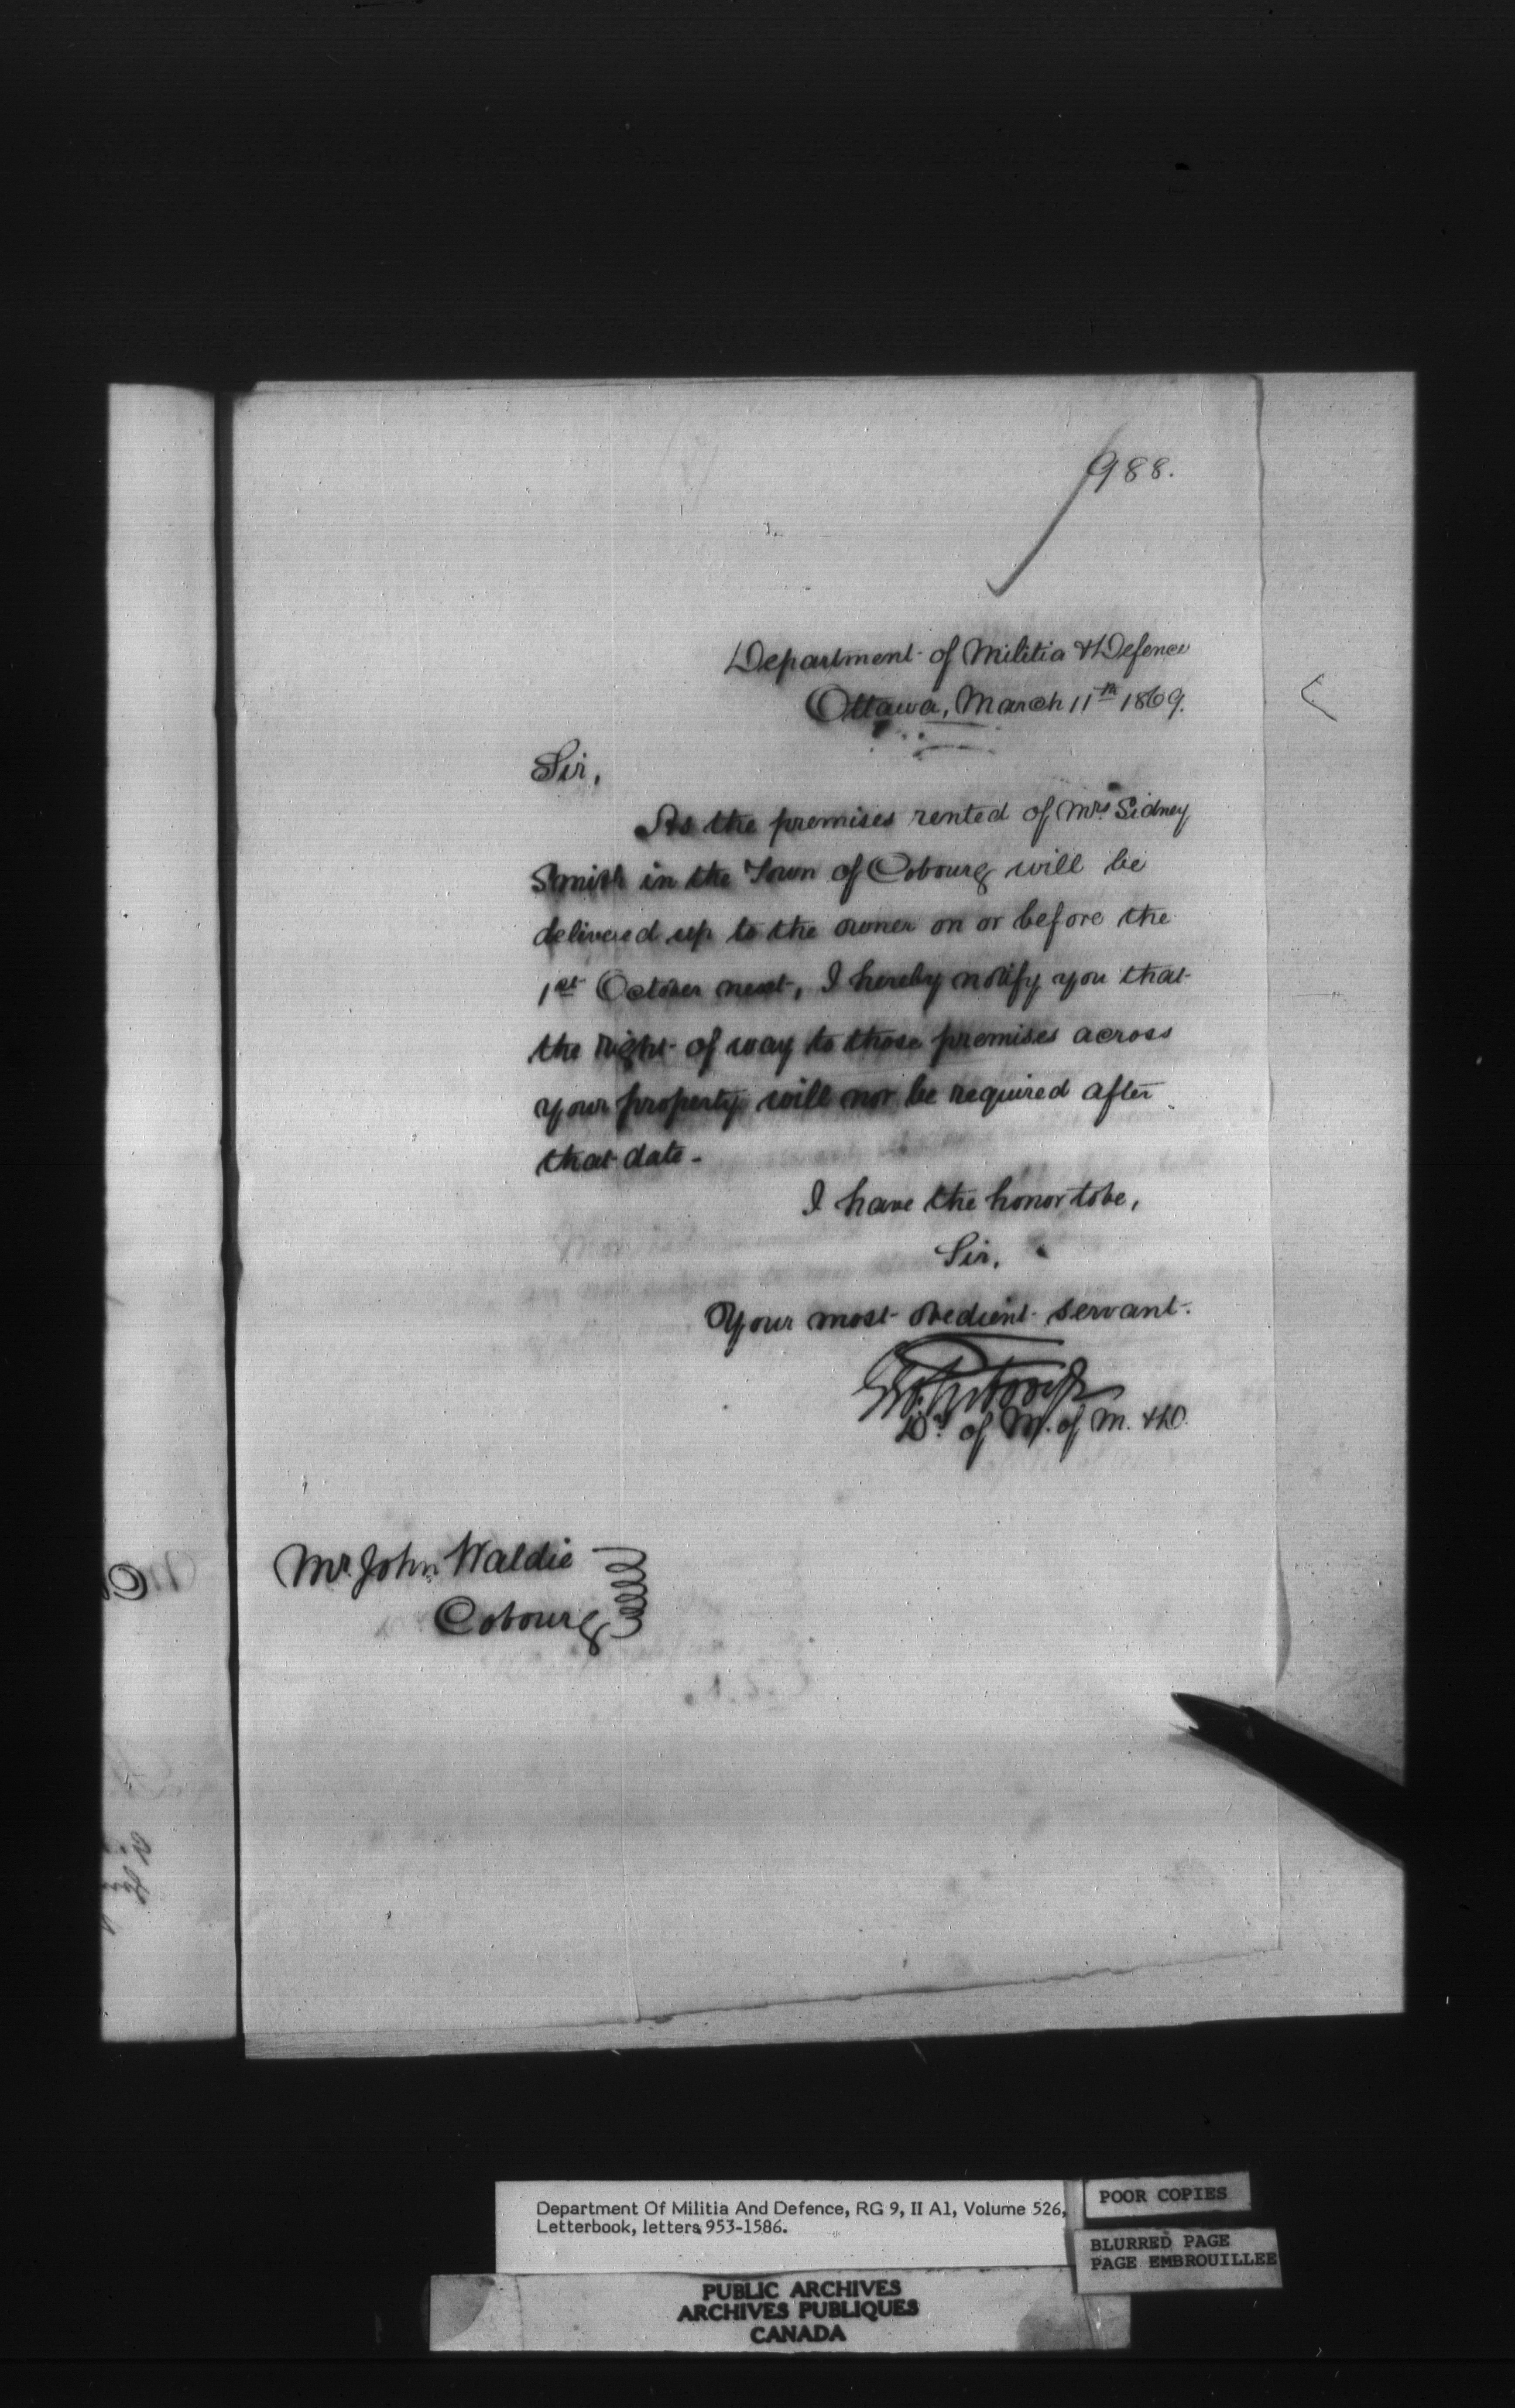 988.
Department of Militia & Defence
Ottawa, March 11th 1869.
Sir,
As the premises rented of Mrs. Sidney
Smith in the Town of Cobourg will be
delivered up to the owner on or before the
1st October next, I hereby notify you that
the right of way to those premises across
your property will not be required after
that date.
I have the honor to be,
Sir,
Your most obedient servant.
D. of M. of M. & D.
Mr. John Waldie
Cobourg
Department Of Militia And Defence, RG 9, II A1, Volume 526,
Letterbook, letters 953-1586.
POOR COPIES
BLURRED PAGE
PAGE EMBROUILLEE
PUBLIC ARCHIVES
ARCHIVES PUBLIQUES
CANADA